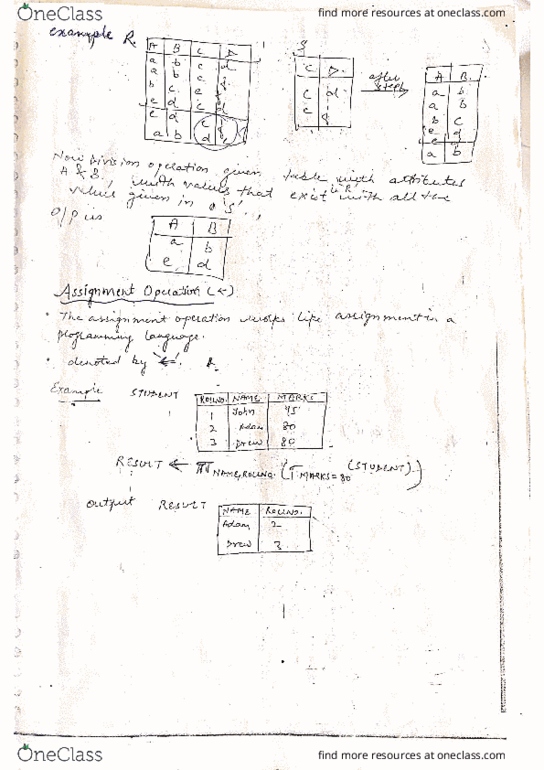 OneClass find more resources at oneclass.com
example R.
A B C D
a b c d
a b e f
b c e f
e d c d
e d e f
a b d e
S
C D
c d
e f
after step1
A B
a b
a b
b c
e d
e
a b
Now division operation given table with attributes
A & B, with values that exist in 'R' with all the
value given in 'S'.
O/P is
A B
a b
e d
Assignment Operation (←)
• The assignment operation works like assignment in a
programming language.
• denoted by '←'.
Example STUDENT
ROLLNO. NAME MARKS
1 John 45
2 Adam 80
3 Drew 80
RESULT ← π NAME, ROLLNO. (σ MARKS=80 (STUDENT))
Output RESULT
NAME ROLLNO.
Adam 2
Drew 3
OneClass find more resources at oneclass.com